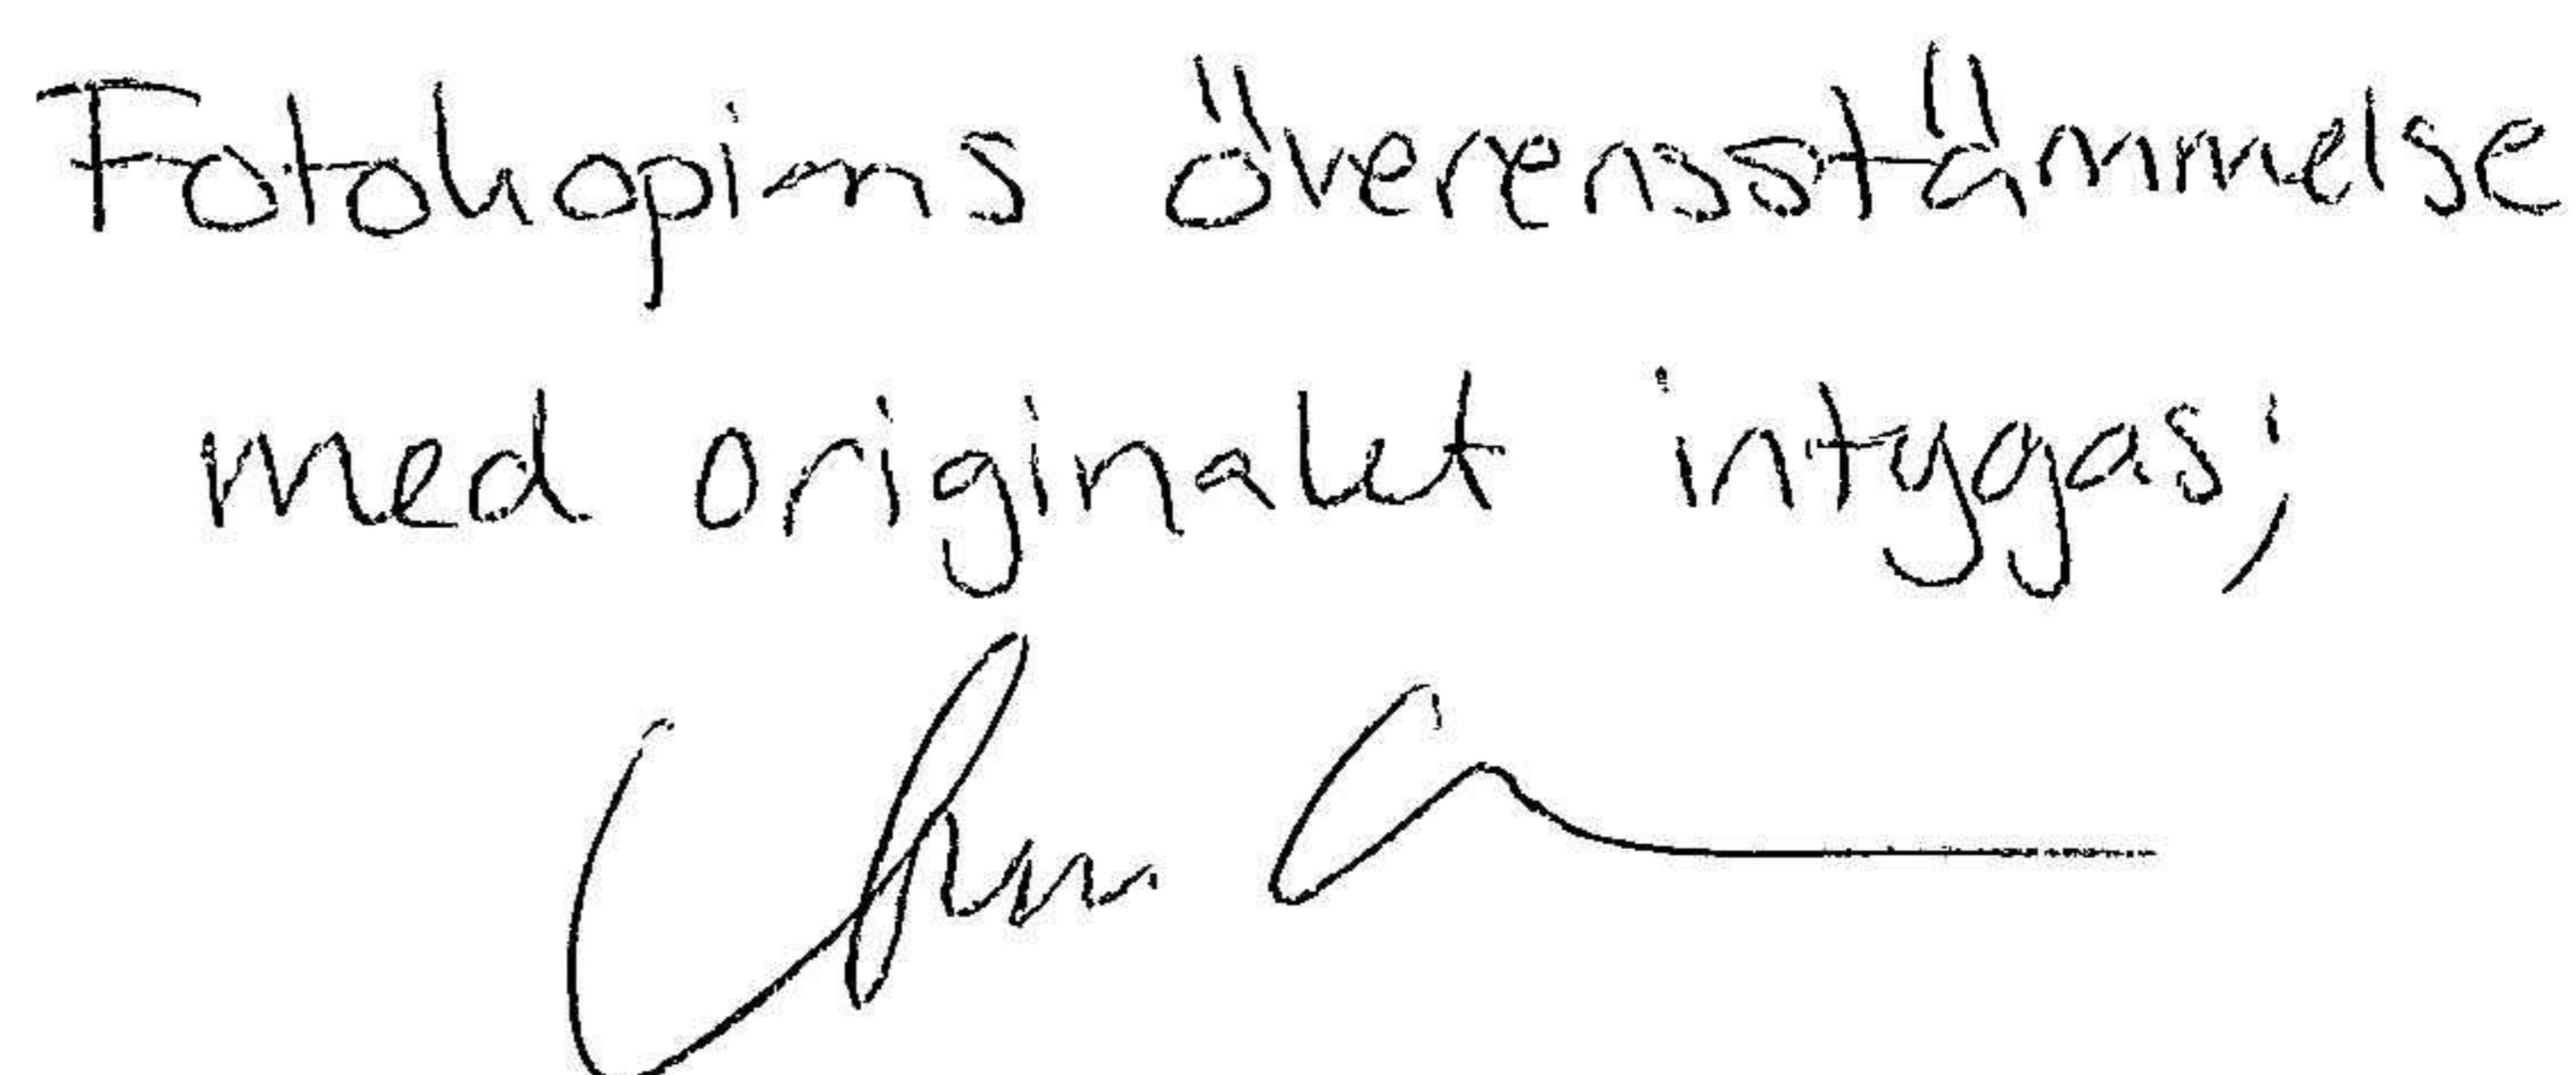 Fotokopians överensstämmelse
med originalet intygas;